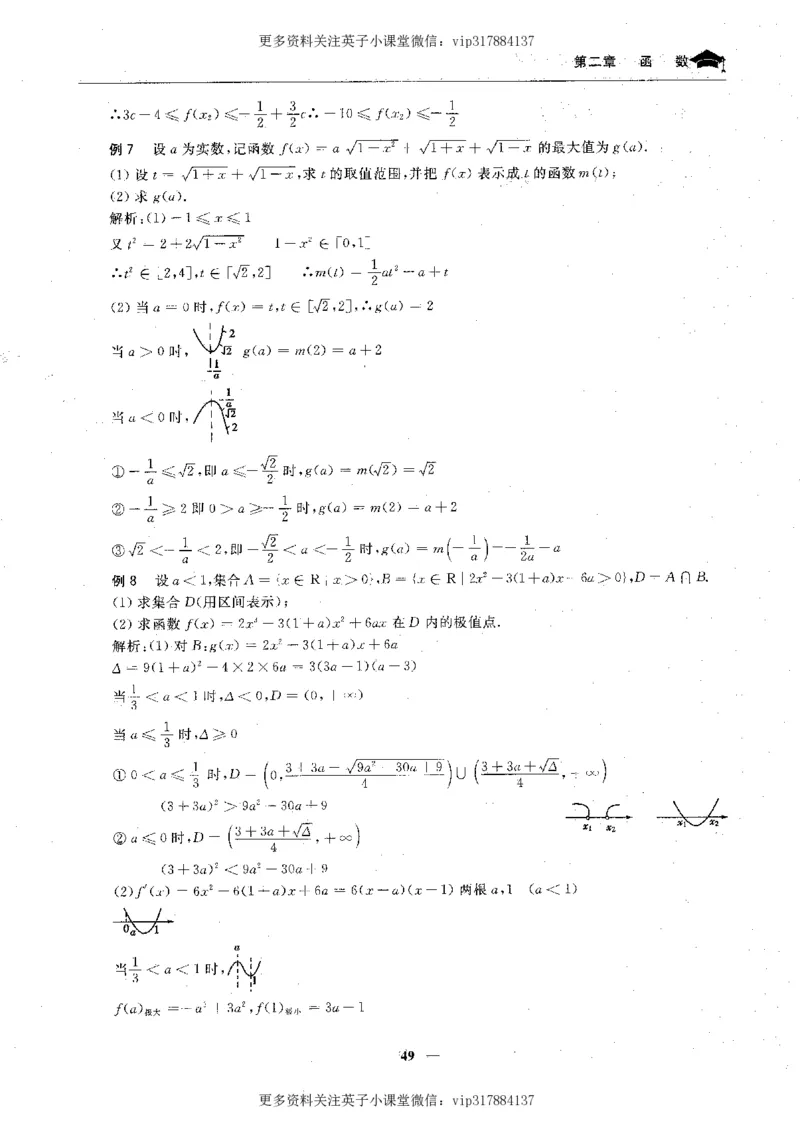 更多资料关注英子小课堂微信：vip317884137
第二章 函 数
∴3c－4≤f(x₂)≤－1/2＋3/2c∴－10≤f(x₂)≤－1/2
例7 设a为实数,记函数f(x)＝a√(1－x²)＋√(1＋x)＋√(1－x)的最大值为g(a).
(1)设t＝√(1＋x)＋√(1－x),求t的取值范围,并把f(x)表示成t的函数m(t);
(2)求g(a).
解析:(1)－1≤x≤1
又t²＝2＋2√(1－x²) 1－x²∈[0,1]
∴t²∈[2,4],t∈[√2,2] ∴m(t)＝1/2at²－a＋t
(2)当a＝0时,f(x)＝t,t∈[√2,2],∴g(a)＝2
当a＞0时, 2 √2 －1/a g(a)＝m(2)＝a＋2
当a＜0时, －1/a √2 2
①－1/a≤√2,即a≤－√2/2时,g(a)＝m(√2)＝√2
②－1/a≥2即0＞a≥－1/2时,g(a)＝m(2)＝a＋2
③√2＜－1/a＜2,即－√2/2＜a＜－1/2时,g(a)＝m(－1/a)＝－1/2a－a
例8 设a＜1,集合A＝{x∈R|x＞0},B＝{x∈R|2x²－3(1＋a)x＋6a＞0},D＝A∩B.
(1)求集合D(用区间表示);
(2)求函数f(x)＝2x³－3(1＋a)x²＋6ax在D内的极值点.
解析:(1)对B:g(x)＝2x²－3(1＋a)x＋6a
Δ＝9(1＋a)²－4×2×6a＝3(3a－1)(a－3)
当1/3＜a＜1时,Δ＜0,D＝(0,＋∞)
当a≤1/3时,Δ≥0
①0＜a≤1/3时,D＝(0,(3＋3a－√(9a²－30a＋9))/4)∪((3＋3a＋√Δ)/4,＋∞)
(3＋3a)²＞9a²－30a＋9
x₁ x₂ x₁ x₂
②a≤0时,D＝((3＋3a＋√Δ)/4,＋∞)
(3＋3a)²＜9a²－30a＋9
(2)f′(x)＝6x²－6(1＋a)x＋6a＝6(x－a)(x－1)两根a,1 (a＜1)
0 a 1
当1/3＜a＜1时, a 1
f(a)极大＝－a³＋3a²,f(1)极小＝3a－1
49 —
更多资料关注英子小课堂微信：vip317884137